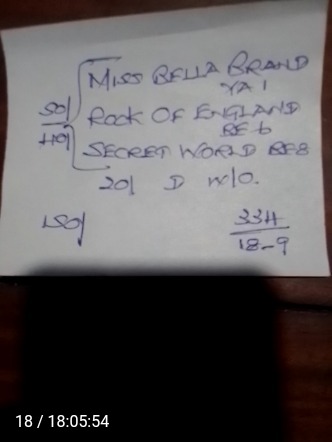 MISS BELLA BRAND
YA 1
50/ ROCK OF ENGLAND
40/ BE 6
SECRET WORLD BE8
20/ D W/O.
150/ 334
18-9
18 / 18:05:54